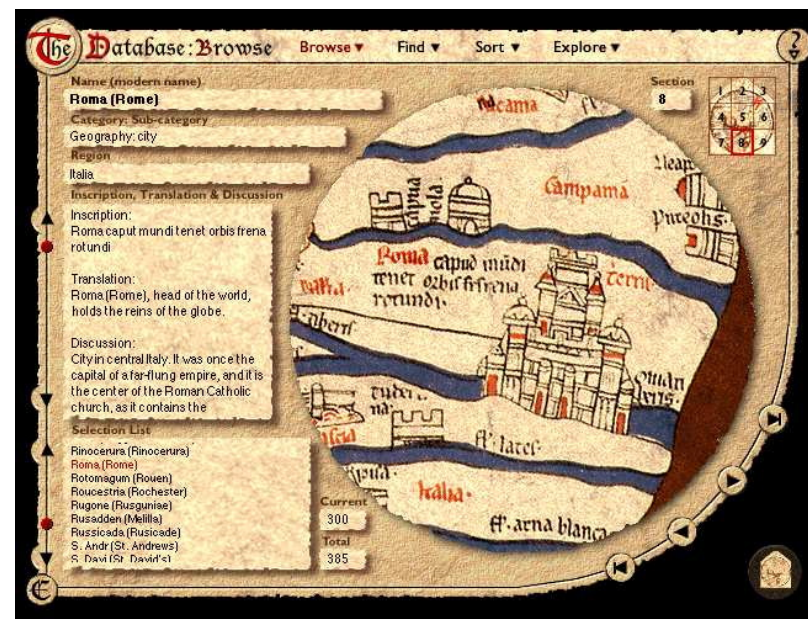 The Database: Browse
Browse ▼ Find ▼ Sort ▼ Explore ▼
?
Name (modern name)
Roma (Rome)
Category: Sub-category
Geography: city
Region
Italia
Inscription, Translation & Discussion
Inscription:
Roma caput mundi tenet orbis frena
rotundi
Translation:
Roma (Rome), head of the world,
holds the reins of the globe.
Discussion:
City in central Italy. It was once the
capital of a far-flung empire, and it is
the center of the Roman Catholic
church, as it contains the
Selection List
Rinocerura (Rinocerura)
Roma (Rome)
Rotomagum (Rouen)
Roucestria (Rochester)
Rugone (Rusguniae)
Rusadden (Melilla)
Russicada (Rusicade)
S. Andr (St. Andrews)
S. Davi (St. David's)
Current
300
Total
385
Section
8
1 2 3
4 5 6
7 8 9
Campama
Roma capud mūdi
tenet orbis frena
rotundi.
Italia.
ff. arna blanca
E